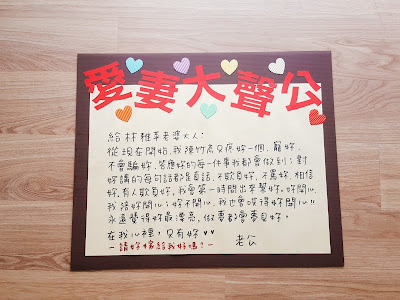 愛妻大聲公
給林雅莘老婆大人:
從現在開始,我陳竹高只疼妳一個,寵妳,
不會騙妳,答應妳的每一件事我都會做到;對
妳講的每句話都是真話,不欺負妳,不罵妳,相信
妳,有人欺負妳,我會第一時間出來幫妳,妳開心,
我陪妳開心;妳不開心,我也會哄得妳開心!!
永遠覺得妳最漂亮,做夢都會夢見妳。
在我心裡,只有妳♥♥
-請妳嫁給我好嗎?- 老公